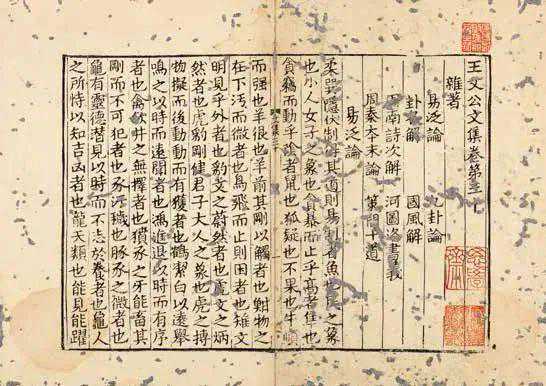 王文公文集卷第三十
雜著
易泛論 九卦論
卦名解 國風解
周南詩次解 河圖洛書義
周秦本末論 策問十道
易泛論
柔巽隱伏制得其道則易制者魚也民之象
也小人女子之象也貪暴而止乎高者隹也
貪竊而動乎陰者鼠也狐疑也不果也牛順
而强也羊很也羊前其剛以觸者也鮒物之
在下汚而微者也鳥飛而止則困者也雉文
明見乎外者也豹文之蔚然者也虎文之炳
然者也虎豹剛健君子大人之象也虎之搏
物擬而後動動而有獲者也鶴潔白以遠舉
鳴之以時而遠聞者也鴻進退以時而有序
者也禽欲井之無擇者也豶豕之牙能畜其
剛而不可犯者也豕汚穢也豚豕之微者也
龜有靈德潛見以時而不志於養者也龜人
之所恃以知吉凶者也龍天類也能見能躍